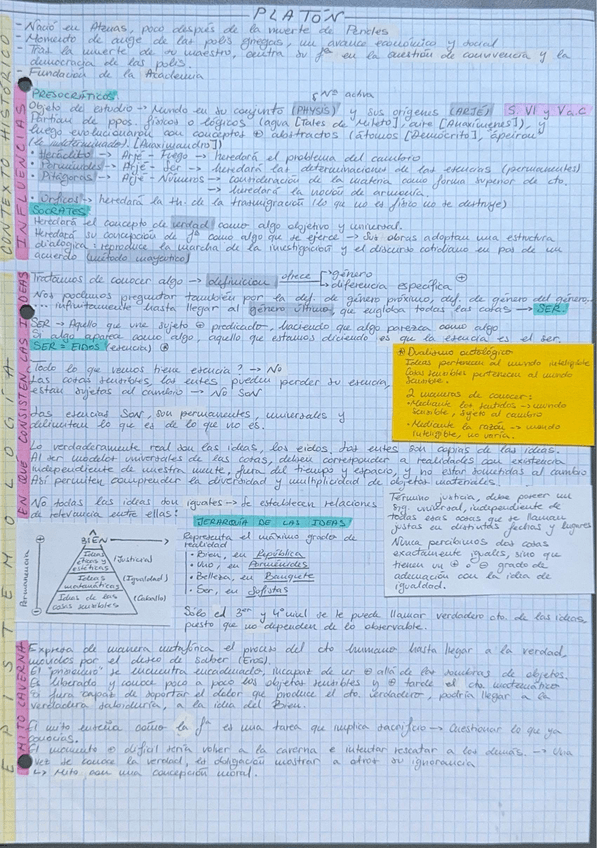 PLATÓN
CONTEXTO HISTÓRICO
- Nació en Atenas, poco después de la muerte de Pericles
- Momento de auge de las polis griegas, un avance económico y social
- Tras la muerte de su maestro, centra su fª en la cuestión de convivencia y la
democracia de las polis.
- Fundación de la Academia
INFLUENCIAS
PRESOCRÁTICOS
Nº activa
Objeto de estudio → Mundo en su conjunto [PHYSIS] y sus orígenes [ARJÉ] S. VI y V a.C
Partían de opos. físicos o lógicos [agua [Tales de Mileto], aire [Anaxímenes]), y
luego evolucionaron con conceptos ⊕ abstractos (átomos [Demócrito], ápeiron
(lo indeterminado) [Anaximandro])
• Heráclito → Arjé - Fuego → heredará el problema del cambio
• Parménides → Arjé - Ser → heredará las determinaciones de las esencias (permanentes)
• Pitágoras → Arjé - Números → consideración de la materia como forma superior de cto.
→ heredará la noción de armonía.
• Órficos → heredará la th. de la transmigración (lo que no es físico no se destruye)
SÓCRATES
Heredará el concepto de verdad como algo objetivo y universal.
Heredará su concepción de fª como algo que se ejerce → Sus obras adoptan una estructura
dialógica: reproduce la marcha de la investigación y el discurso cotidiano en pos de un
acuerdo (método mayéutico)
EPISTEMOLOGÍA
EN QUE CONSISTEN LAS IDEAS
Tratamos de conocer algo → definición ofrece → género
→ diferencia específica ⊕
Nos podemos preguntar también por la def. de género próximo, def. de género del género
... infinitamente hasta llegar al género último, que engloba todas las cosas → SER.
SER → Aquello que une sujeto ⊕ predicado, haciendo que algo parezca como algo
Si algo aparece como algo, aquello que estamos diciendo es que la esencia es el ser.
SER = EIDOS (esencia) ⊛
¿Todo lo que vemos tiene esencia? → No
Las cosas sensibles, los entes, pueden perder su esencia,
están sujetos al cambio → No SON
Las esencias SON, son permanentes, universales y
delimitan lo que es de lo que no es.
⊛ Dualismo ontológico
Ideas pertenecen al mundo inteligible
Cosas sensibles pertenecen al mundo
sensible.
2 maneras de conocer:
• Mediante los sentidos → mundo
sensible, sujeto al cambio
• Mediante la razón → mundo
inteligible, no varía.
Lo verdaderamente real son las ideas, los eidos, los entes son copias de las ideas.
Al ser modelos universales de las cosas, deben corresponder a realidades con existencia
independiente de nuestra mente, fuera del tiempo y espacio, y no estar sometidas al cambio
Así permiten comprender la diversidad y multiplicidad de objetos materiales.
No todas las ideas son iguales → Se establecen relaciones
de relevancia entre ellas:
Término justicia, debe poseer un
sig. universal, independiente de
todas esas cosas que se llaman
justas en distintas fechas y lugares
Nunca percibimos dos cosas
exactamente iguales, sino que
tienen un ⊕ o ⊖ grado de
adecuación con la idea de
igualdad.
Permanencia
BIEN
Ideas éticas y estéticas (Justicia)
Ideas matemáticas (Igualdad)
Ideas de las cosas sensibles (Caballo)
JERARQUÍA DE LAS IDEAS
Representa el máximo grado de
realidad
• Bien, en República
• Uno, en Parménides
• Belleza, en Banquete
• Ser, en Sofistas
Sólo el 3er y 4º nivel se le puede llamar verdadero cto. de las ideas,
puesto que no dependen de lo observable.
MITO CAVERNA
Expresa de manera metafórica el proceso del cto humano hasta llegar a la verdad,
movidos por el deseo de saber (Eros).
El "prisionero" se encuentra encadenado, incapaz de ver ⊕ allá de las sombras de objetos.
Es liberado y conoce poco a poco los objetos sensibles y ⊕ tarde el cto matemático
Si fuera capaz de soportar el dolor que produce el cto. verdadero, podría llegar a la
verdadera sabiduría, a la idea del Bien.
El mito enseña cómo la fª es una tarea que implica sacrificio → Cuestionar lo que ya
conocías.
El momento ⊕ difícil sería volver a la caverna e intentar rescatar a los demás. → Una
vez se conoce la verdad, es obligación mostrar a otros su ignorancia
↳ Mito con una concepción moral.